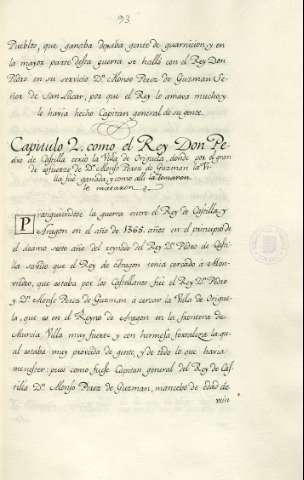 93
Pueblos, que ganaba dexaba gente de guarnicion, y en
la mayor parte desta guerra se halló con el Rey Don
Pedro en su servicio Dn. Alonso Perez de Guzman Se-
ñor de San Lucar, por que el Rey lo amava mucho y
le havia hecho Capitan general de su gente.
Capitulo 2. como el Rey Don Pe-
dro de Castilla cercó la Villa de Origuela, donde por el gran
de esfuerzo de Dn. Alonso Perez de Guzman la Vi-
lla fué ganada, y como alli
le mataron.
Prosiguiendose la guerra entre el Rey de Castilla y
Aragon en el año de 1365. años en el principio de
el decimo sexto año del reynado del Rey Dn. Pedro de Casti-
lla sabido que el Rey de Aragon tenia cercado a Mon-
viedro, que estaba por los Castellanos fué el Rey Dn. Pedro
y Dn. Alonso Perez de Guzman à cercar la Villa de Origue-
la, que es en el Reyno de Aragon en la frontera de
Murcia, Villa muy fuerte y con hermosa fortaleza la qu-
al estaba muy proveida de gente, y de todo lo que havia
menester: pues como fuese Capitan general del Rey de Cas-
tilla Dn. Alonso Perez de Guzman, mancebo de edad de
vein